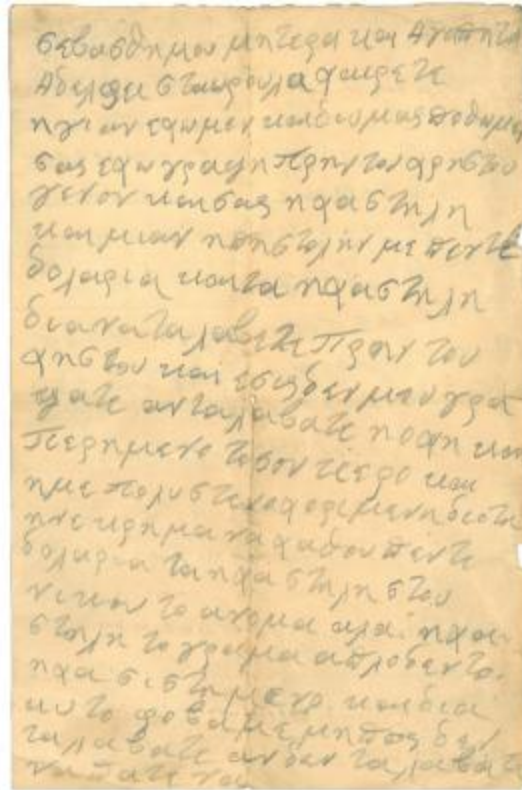 σεβασθημου μητερα και Αγαπητη
Αδελφι σταυρουλα χαιρετε
ηγιαν εχωμεν και δι υμας ποθωμεν
σας εχω γραψη πρην τον χρηστου
γενον και σας ηχα στηλη
και μιαν ηπηστολην με πεντε
δολαρια και τα ηχα στηλη
δια να τα λαβετε πρην του
χηστου και εσις δεν μου γρα
ψατε αν τα λαβατε η οχη και
περημενο τοσον τερο και
ημε πολυ στενοχοριμενη διοτη
ηνε κρημα να χαθουν πεντε
δολαρια τα ηχα στηλη στου
νικου το ονομα αλα ηχα
στηλη το γραμα απλο δεν το
ηχα σιστημενο και δια
αυτο φοβαμε μηπος δεν
τα λαβατε αν δεν τα λαβατε
να πατε να